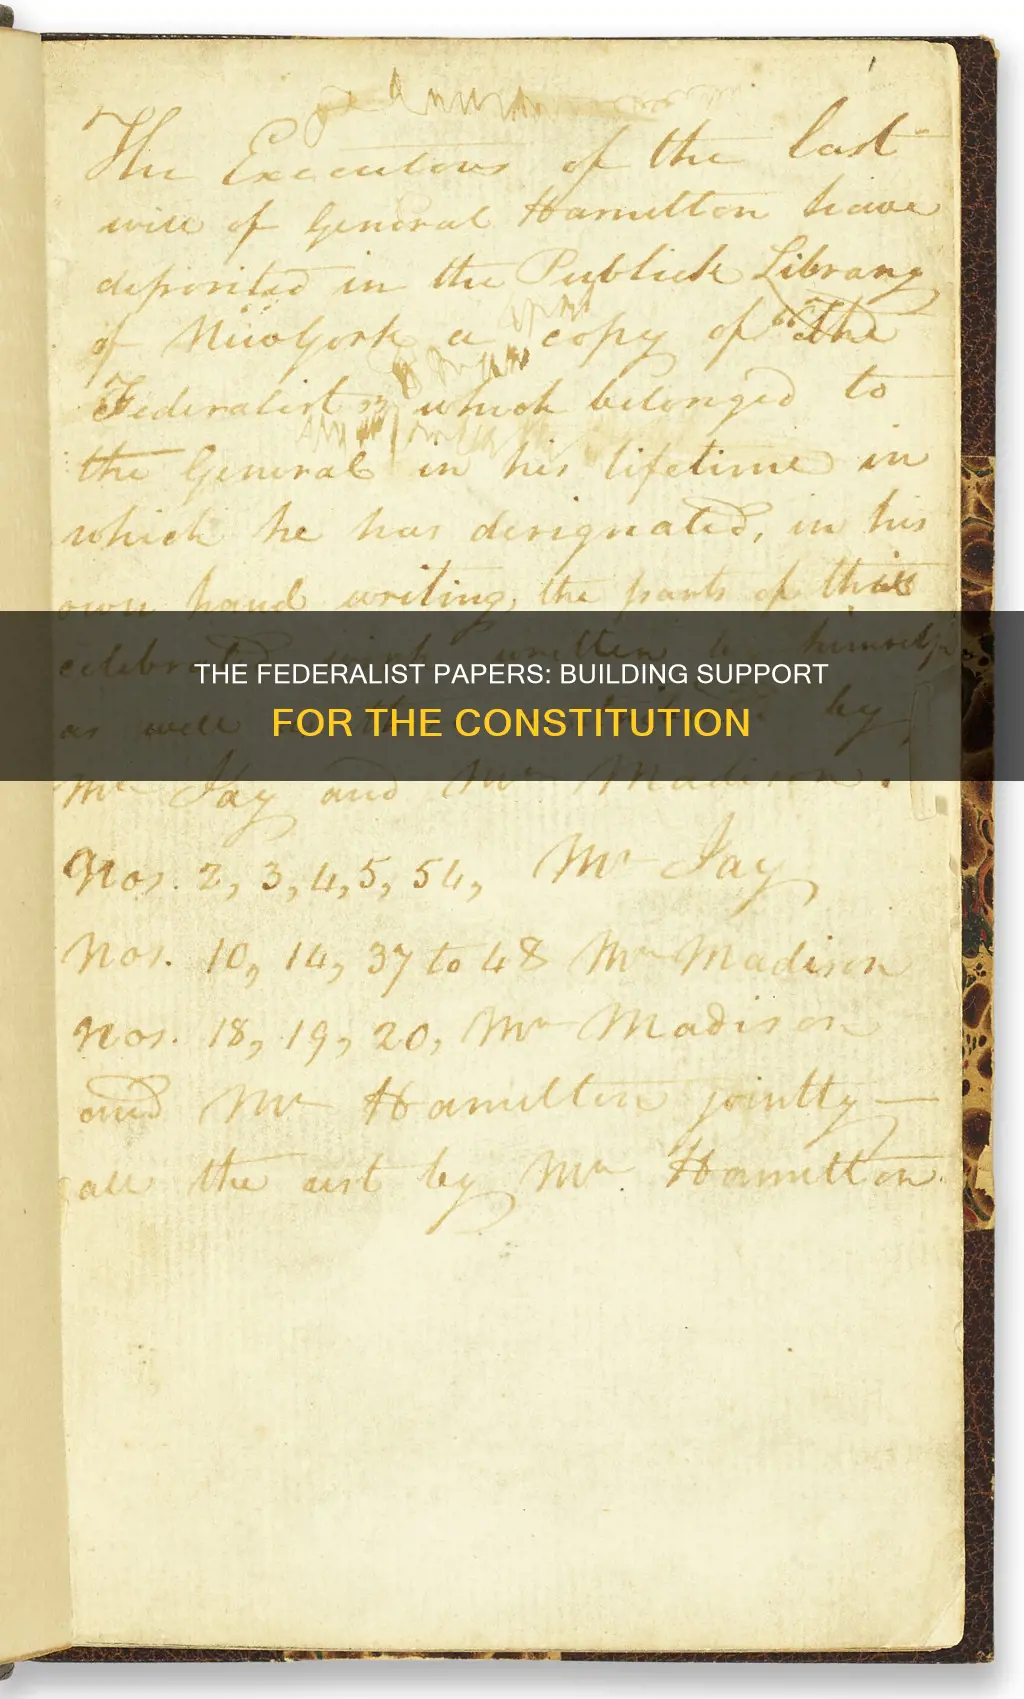 The Executors of the last
will of General Hamilton have
deposited in the Publick Library
of New York a copy of "The
Federalist" which belonged to
the General in his lifetime in
which he has designated, in his
own hand writing, the parts of that
celebrated work written by himself,
THE FEDERALIST PAPERS: BUILDING SUPPORT
FOR THE CONSTITUTION
as well as by
Mr Jay and Mr Madison.
Nos. 2, 3, 4, 5, 54, Mr Jay
Nos. 10, 14, 37 to 48 Mr Madison
Nos. 18, 19, 20, Mr Madison
and Mr Hamilton jointly —
all the rest by Mr Hamilton.